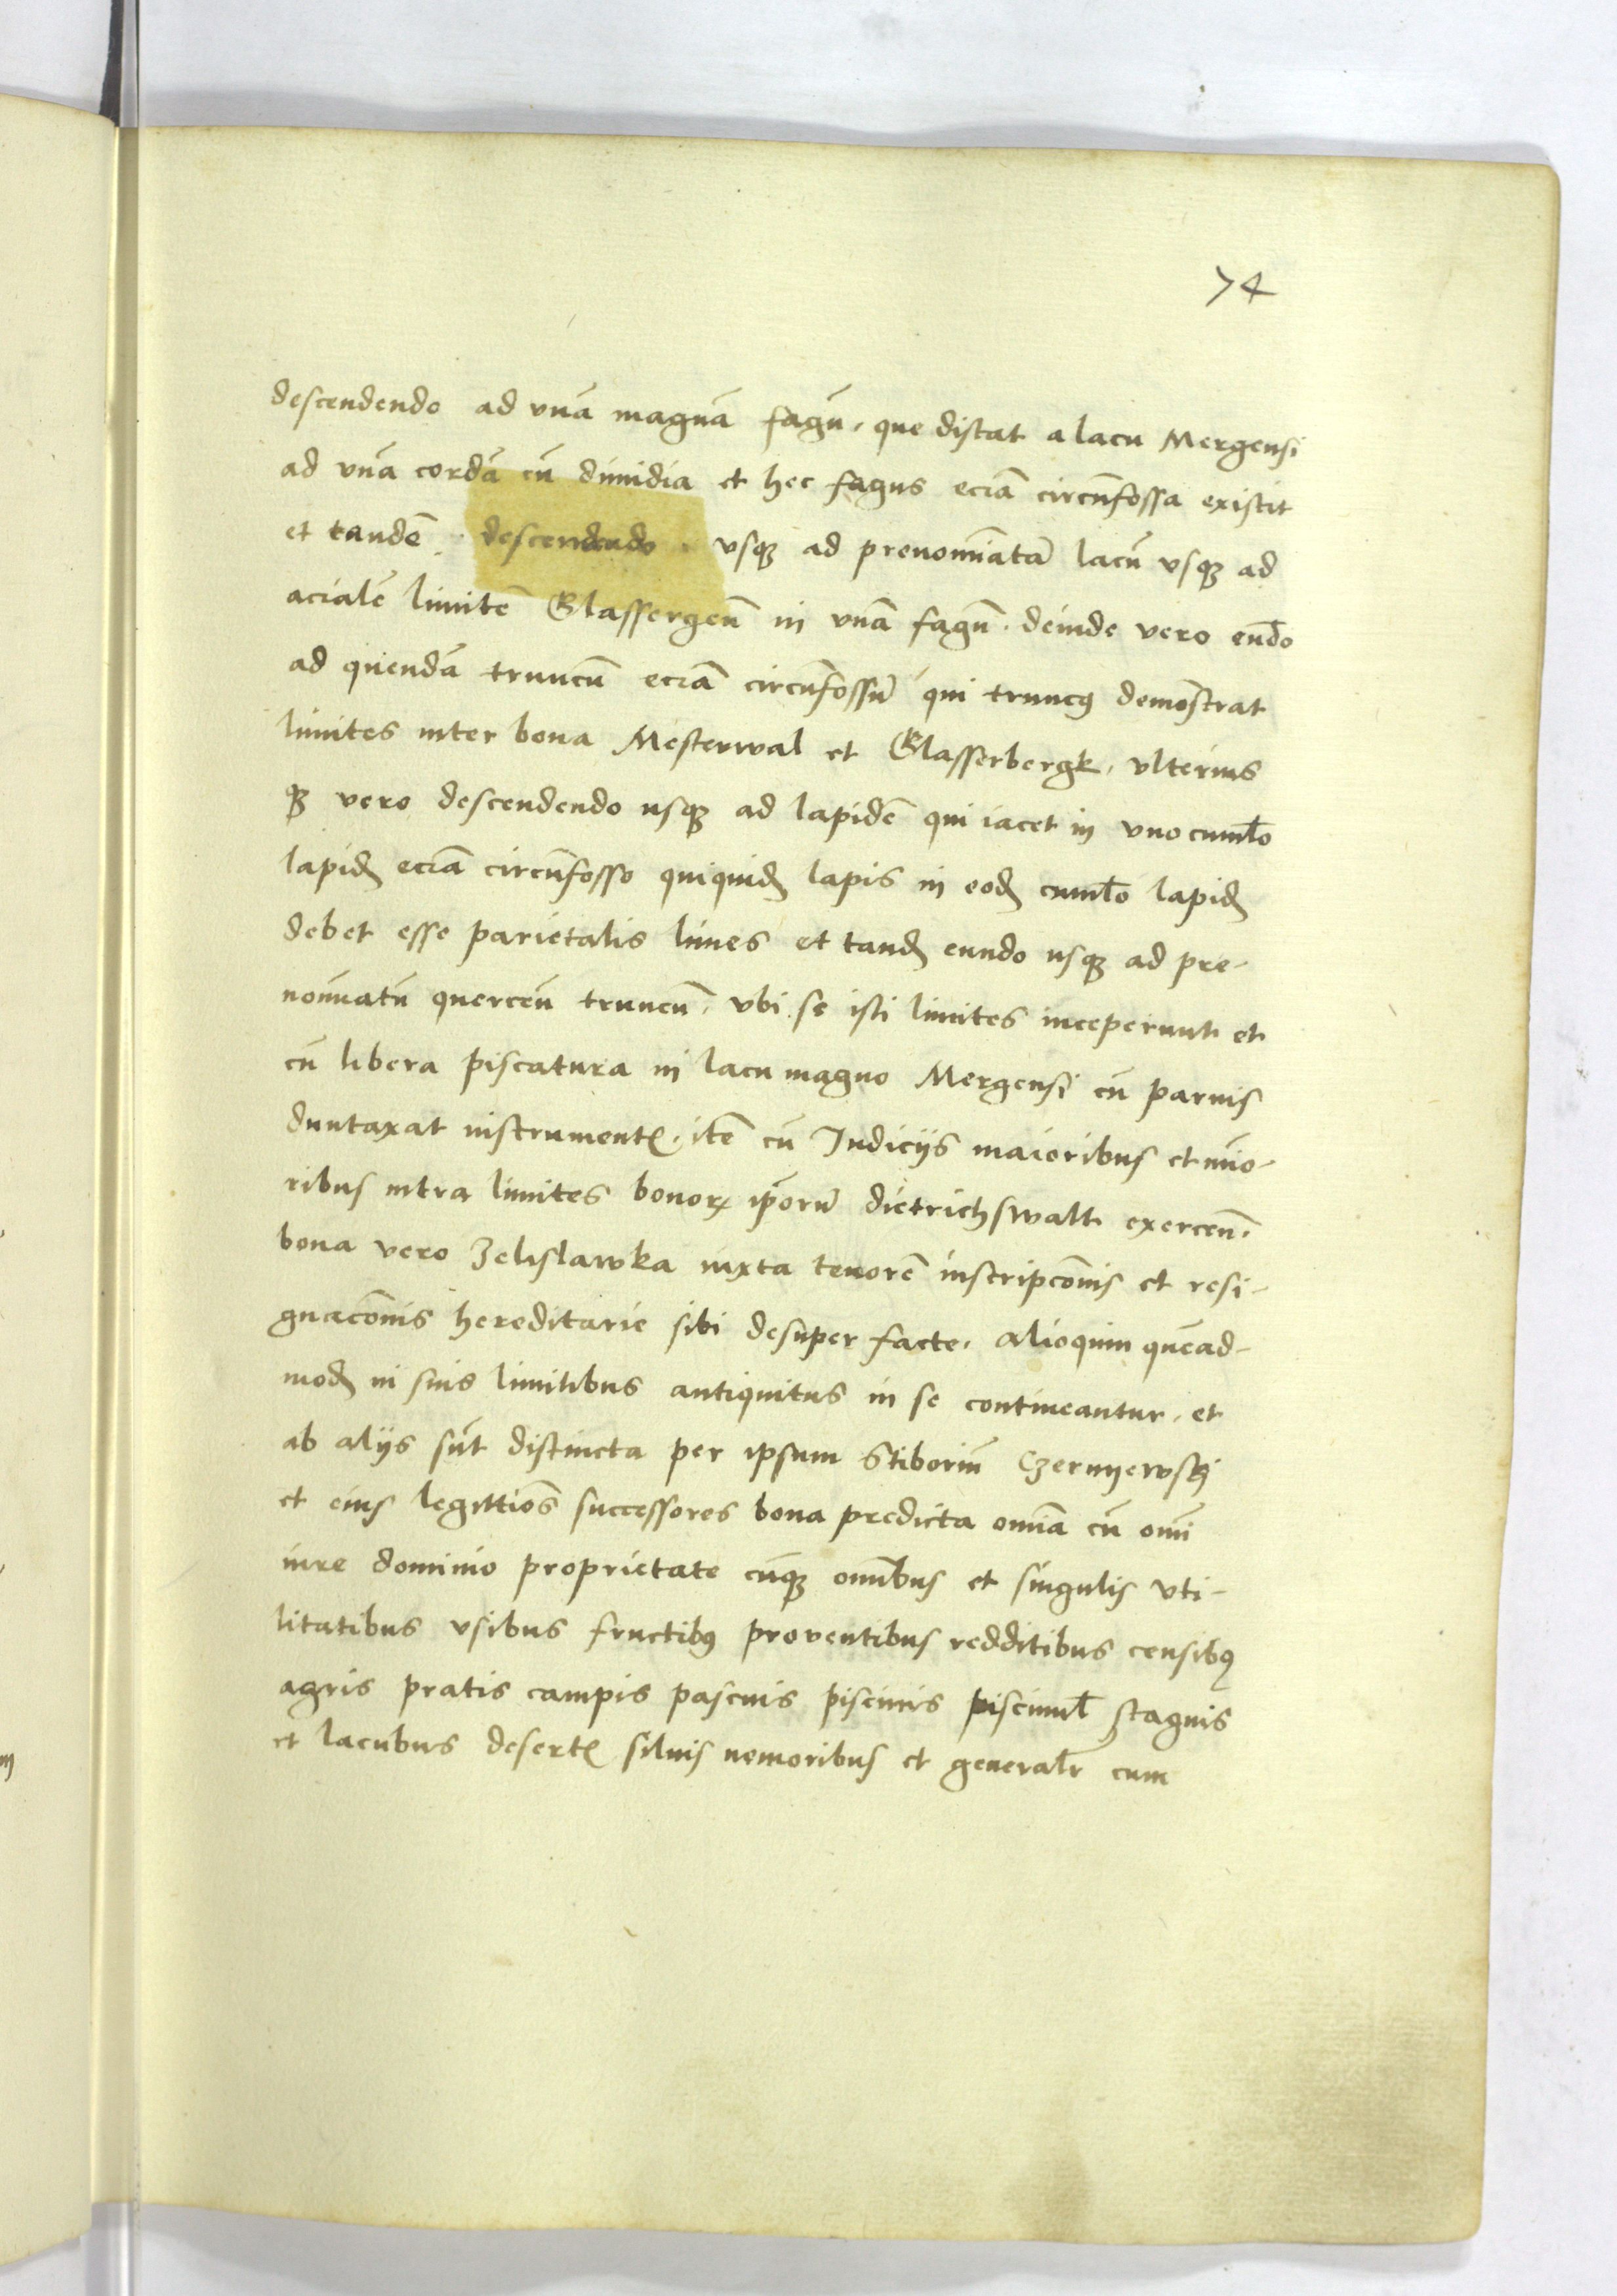 74
descendendo ad vnā magnā fagū, que distat a lacu Mergensi
ad vnā cordā cū dimidia et hec fagus eciā circūfossa existit
et tandē descendendo vsqꝫ ad prenominatā lacū vsqꝫ ad
acialē limitē Glassergeñ in vnā fagū. deinde vero eundo
ad quendā truncū eciā circūfossū qui truncꝰ demōstrat
limites inter bona Mesterwal et Glasserbergk, vlterius
qꝫ vero descendendo usqꝫ ad lapidē qui iacet in vno cumlo
lapidꝫ eciā circūfosso quiquidꝫ lapis in eodꝫ cumlo lapidꝫ
debet esse parietalis limes et tandꝫ eundo usqꝫ ad pre-
nōīatū querceū truncū, vbi se isti limites inceperunt et
cū libera piscatura in lacu magno Mergensi cū paruis
duntaxat instrumentꝭ, itē cū Iudicijs maioribus et mīo-
ribus intra limites bonoꝝ ip̄orū dietrichswalt exerceñ.
bona vero Zelislawka iuxta tenorē inscripc̄onis et resi-
gnac̄onis hereditarie sibi desuper facte, alioquin quēad-
modꝫ in suis limitibus antiquitus in se contineantur, et
ab alijs sūt distincta per ipsum Stiboriū Czernyewskj
et eius legittīos successores bona predicta om̄ia cū om̄i
iure dominio proprietate cūqꝫ om̄ibus et singulis vti-
litatibus vsibus fructibꝰ proventibus redditibus censibꝰ
agris pratis campis pascuis piscinis piscinul̄ stagnis
et lacubus desertꝭ siluis nemoribus et general̄r cum